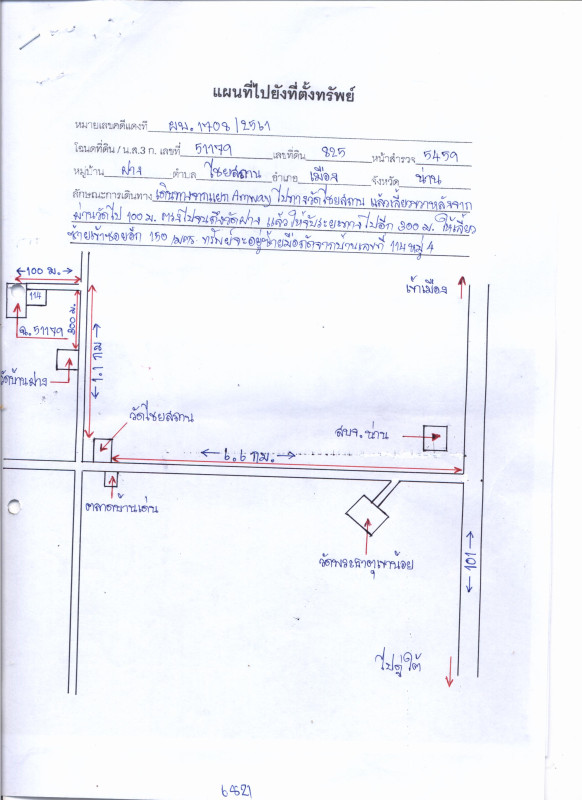 แผนที่ไปยังที่ตั้งทรัพย์
หมายเลขคดีแดงที่ ผบ. 1708/2561
โฉนดที่ดิน / น.ส.3 ก. เลขที่ 51179 เลขที่ดิน 825 หน้าสำรวจ 5459
หมู่บ้าน ฝาง ตำบล ไชยสถาน อำเภอ เมือง จังหวัด น่าน
ลักษณะการเดินทาง เดินทางจากแยก Amway ไปทางวัดไชยสถาน แล้วเลี้ยวขวาหลังจาก
ผ่านวัดไป 100 ม. ตรงไปจนถึงวัดฝาง แล้วให้จับระยะทางไปอีก 300 ม. ให้เลี้ยว
ซ้ายเข้าซอยอีก 150 เมตร ทรัพย์จะอยู่ซ้ายมือถัดจากบ้านเลขที่ 114 หมู่ 4
100 ม.
เข้าเมือง
114
300 ม.
ฉ.51179
1.1 กม
วัดบ้านฝาง
วัดไชยสถาน
สบจ.น่าน
6.6 กม.
ตลาดบ้านเด่น
วัดพระธาตุเขาน้อย
101
ไปภู่ใต้
6821